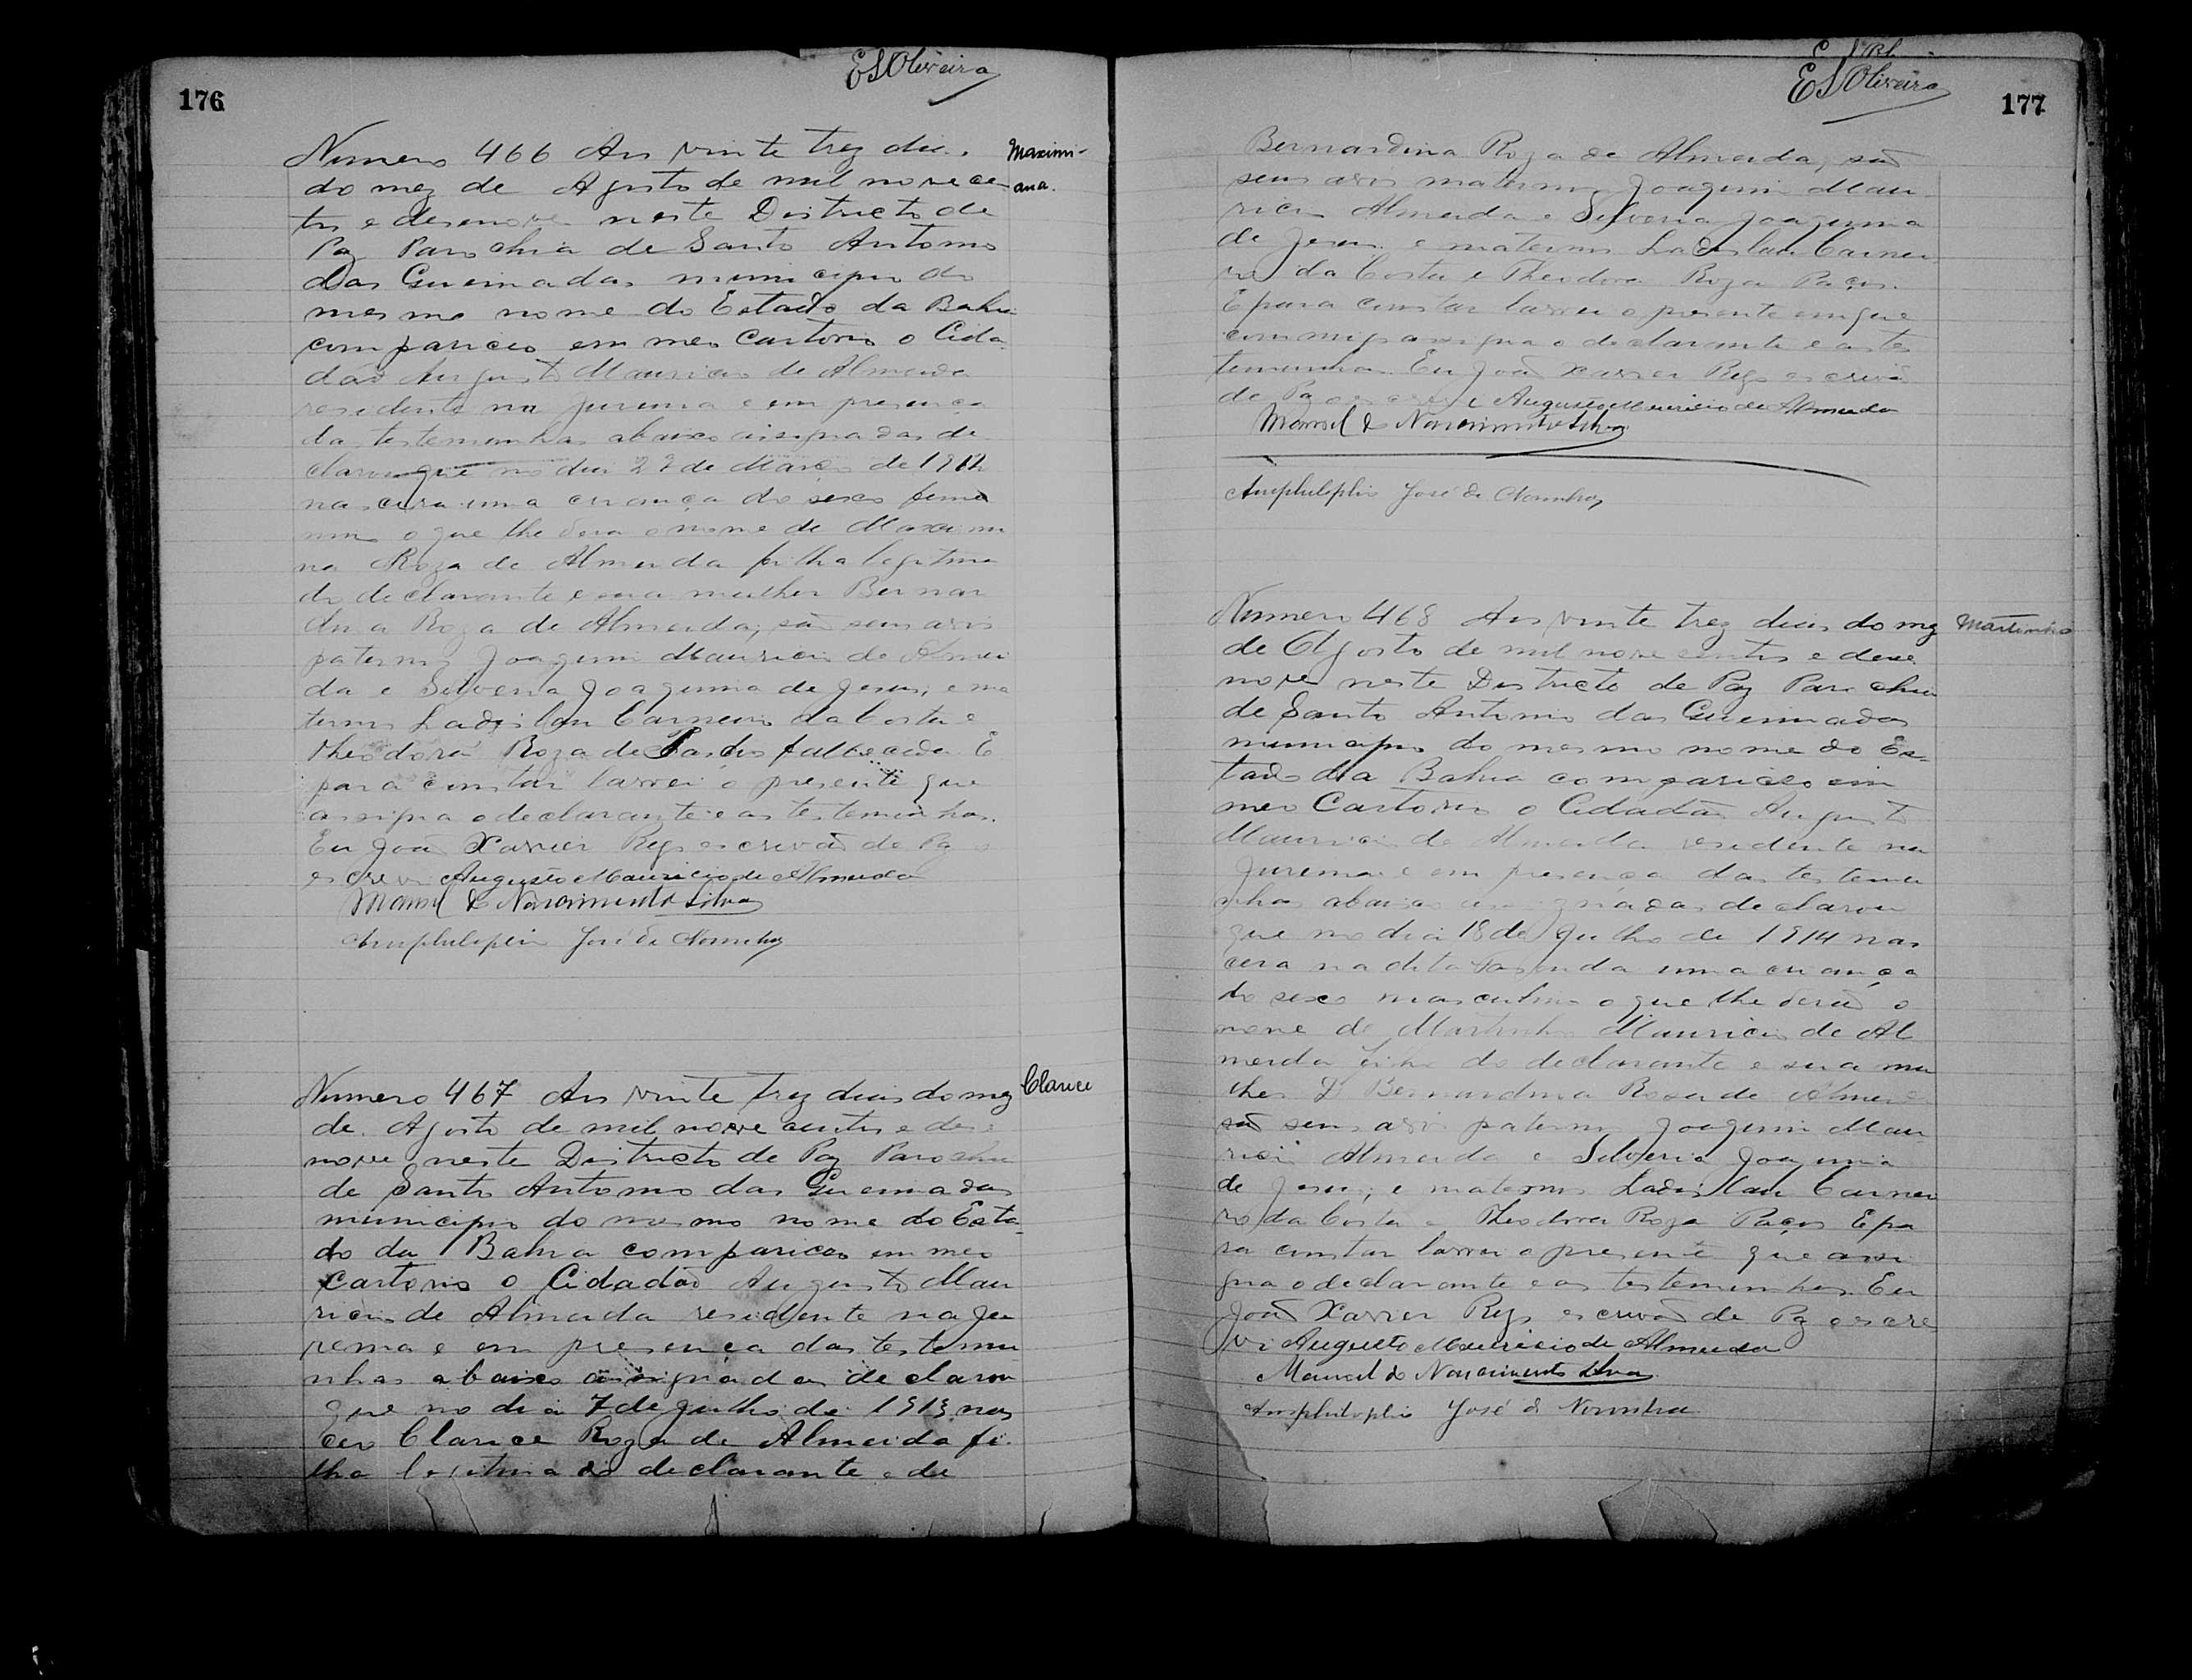 ESOliveira
176
Numero 466 Aos vinte trez dias
Maximi-
ana.
do mez de Agosto de mil novecen
tos e desenove neste Districto de
Paz Parochia de Santo Antonio
das Queimadas municipio do
mesmo nome do Estado da Bahia
compariceo em meo Cartorio o Cida
dão Augusto Mauricio de Almeida
residente na Jurema e em presença
das testemunhas abaixo assignadas de
clarou que no dia de Março de 1912
nascera uma criança do sexo femi
nino o que lhe dera o nome de Maximi
na Roza de Almeida filha legitima
do declarante e sua mulher Bernar
dina Roza de Almeida, são seus avós
paternos Joaquim Mauricio de Almei
da e Silveria Joaquina de Jesus, e ma
ternos Ladislau Carneiro da Costa e
Theodora Roza de fallecida E
para constar lavrei o presente que
assigna o declarante e as testemunhas.
Eu João Xavier Reys escrivão de Paz
escrevi Augusto Mauricio de Almeida
Manoel do Nascimento Silva
Amphilophio José de Noronha
Numero 467 Aos vinte trez dias do mez
Clarice
de Agosto de mil nove centos e dese
nove neste Districto de Paz Parochia
de Santo Antonio das Queimadas
municipio do mesmo nome do Esta-
do da Bahia compariceo em meo
Cartorio o Cidadão Augusto Mau
ricio de Almeida residente na Ju
rema e em presença das testemu
nhas abaixo assignadas declarou
que no dia 7 de Julho de 1913 nas
ceo Clarice Roza de Almeida fi
lha legitima do declarante e de
ESOliveira
177
Bernardina Roza de Almeida, são
seus avós maternos Joaquim Mau
ricio Almeida e Silveria Joaquina
de Jesus e maternos Ladislau Carnei
ro da Costa e Theodora Roza Paços.
E para constar lavrei o presente em que
commigo assigna o declarante e as tes
temunhas. Eu João Xavier Reys escrivão
de Paz escrevi Augusto Mauricio de Almeida
Manoel do Nascimento Silva
Amphilophio José de Noronha
Numero 468 Aos vinte trez dias do mez
Martinho
de Agosto de mil nove centos e dese
nove neste Districto de Paz Parochia
de Santo Antonio das Queimadas
municipio do mesmo nome do Es-
tado da Bahia compariceo em
meo Cartorio o Cidadão Augusto
Mauricio de Almeida residente na
Jurema e em presença das testemu
nhas abaixo assignadas declarou
que no dia 18 de Julho de 1914 nas
cera na dita fasenda uma criança
do sexo masculino o que lhe derão o
nome de Martinho Mauricio de Al
meida filho do declarante e sua mu
lher D Bernardina Rosa de Almeida
são seus avós paternos Joaquim Mau
ricio Almeida e Silveria Joaquina
de Jesus, e maternos Ladislau Carnei
ro da Costa e Theodora Roza Paços E pa
ra constar lavrei o presente que assi
gna o declarante e as testemunhas. Eu
João Xavier Reys escrivão de Paz escre
vi Augusto Mauricio de Almeida
Manoel do Nascimento Silva
Amphilophio José de Noronha